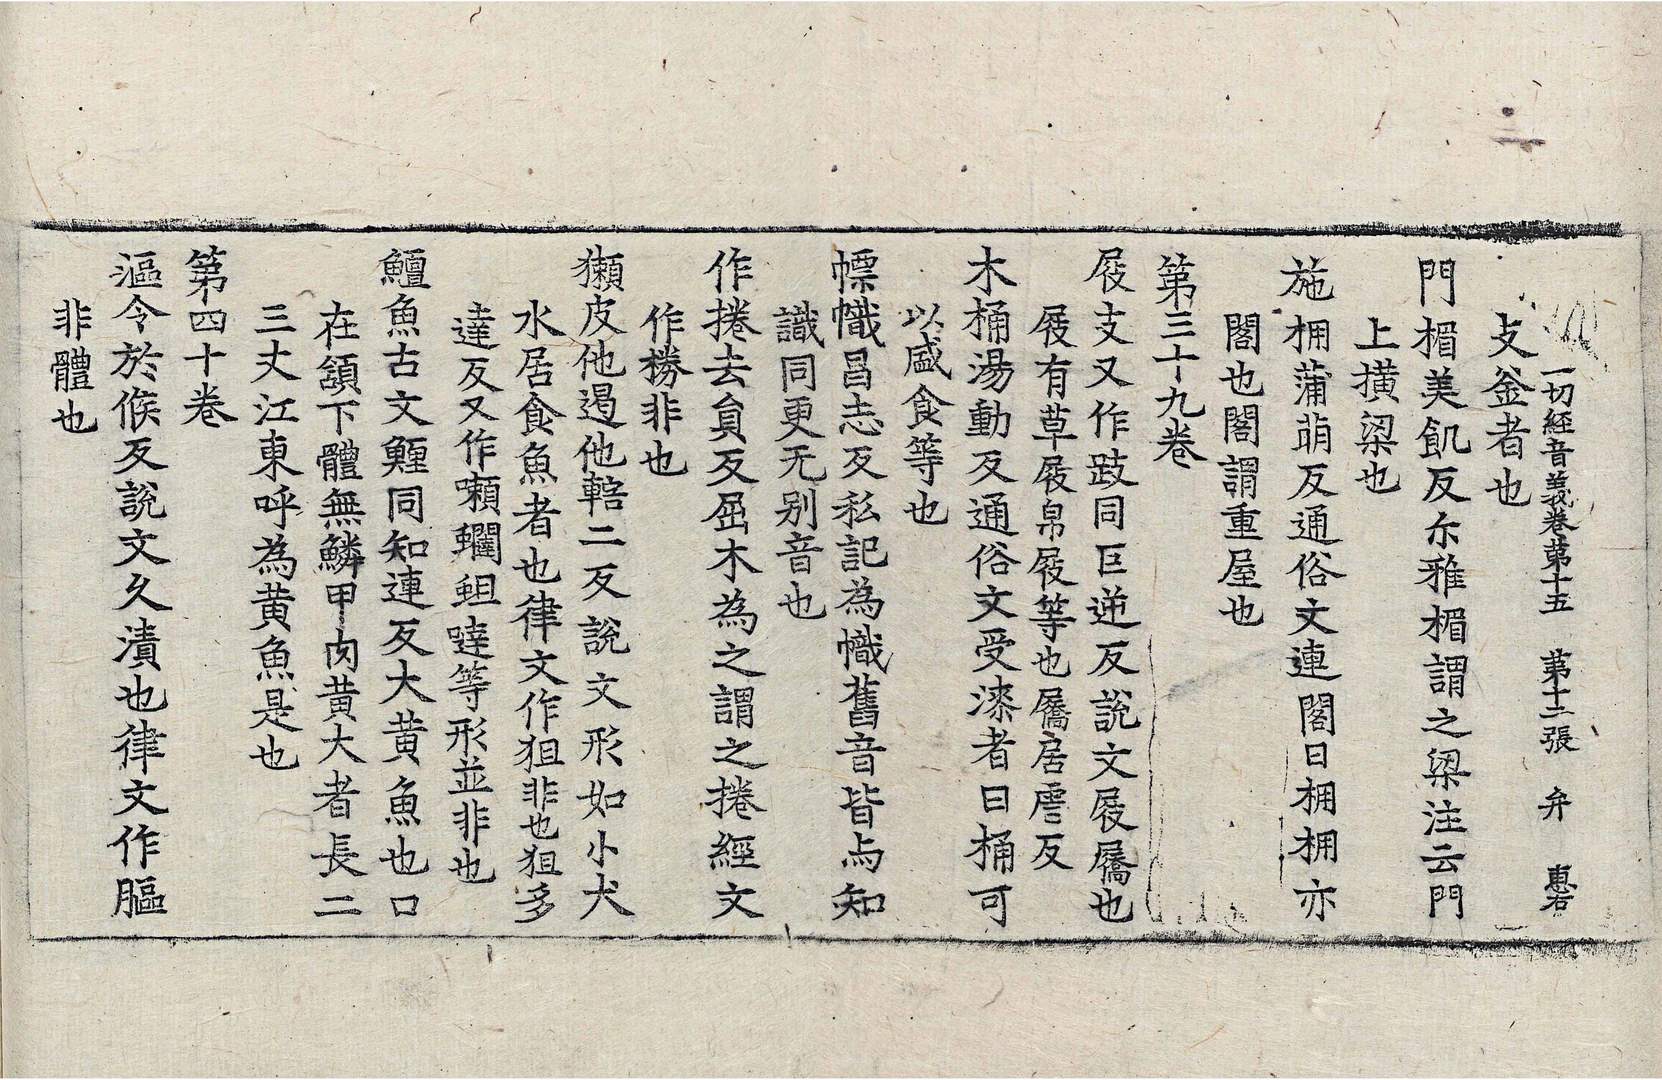 一切經音義卷第十五　第十二張　弁　惠右
攴釜者也
門楣美飢反尒雅楣謂之梁注云門
上橫梁也
施㭓蒲萠反通俗文連閣曰㭓㭓亦
閣也閣謂重屋也
第三十九卷
屐支又作跂同巨逆反說文屐屩也
屐有草屐帛屐等也屩居虐反
木桶湯動反通俗文受漆者曰桶可
以盛食等也
幖幟昌志反私記為幟舊音皆与知
識同更无別音也
作捲去負反屈木為之謂之捲經文
作勝非也
獺皮他遏他轄二反說文形如小犬
水居食魚者也律文作狙非也狙多
達反又作嚪𧓽䱇噠等形並非也
鱣魚古文鱓同知連反大黃魚也口
在頷下體無鱗甲肉黃大者長二
三丈江東呼為黃魚是也
第四十卷
漚令於候反說文久漬也律文作膒
非體也